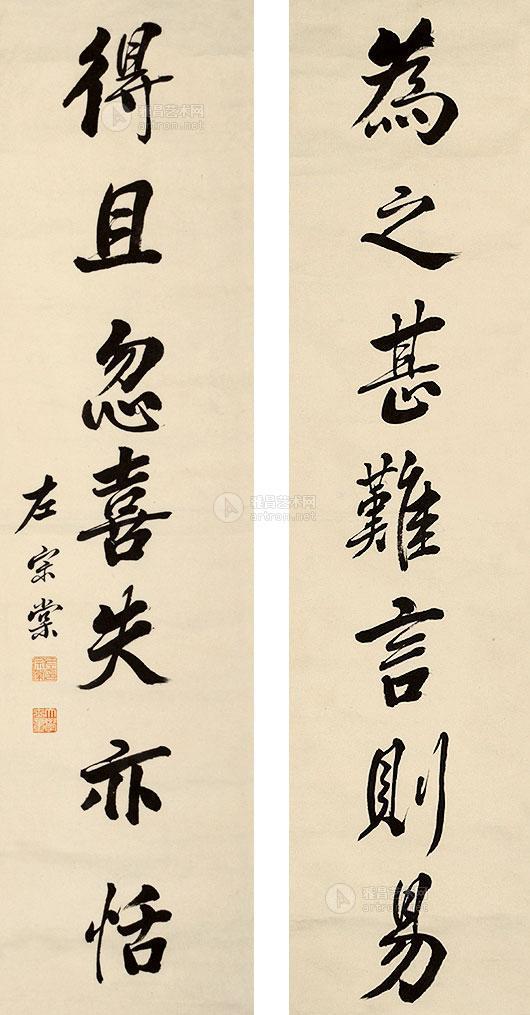 為之甚難言則易
得且忽喜失亦恬
左宗棠
雅昌艺术网
artron.net
雅昌艺术网
artron.net
雅昌艺术网
artron.net